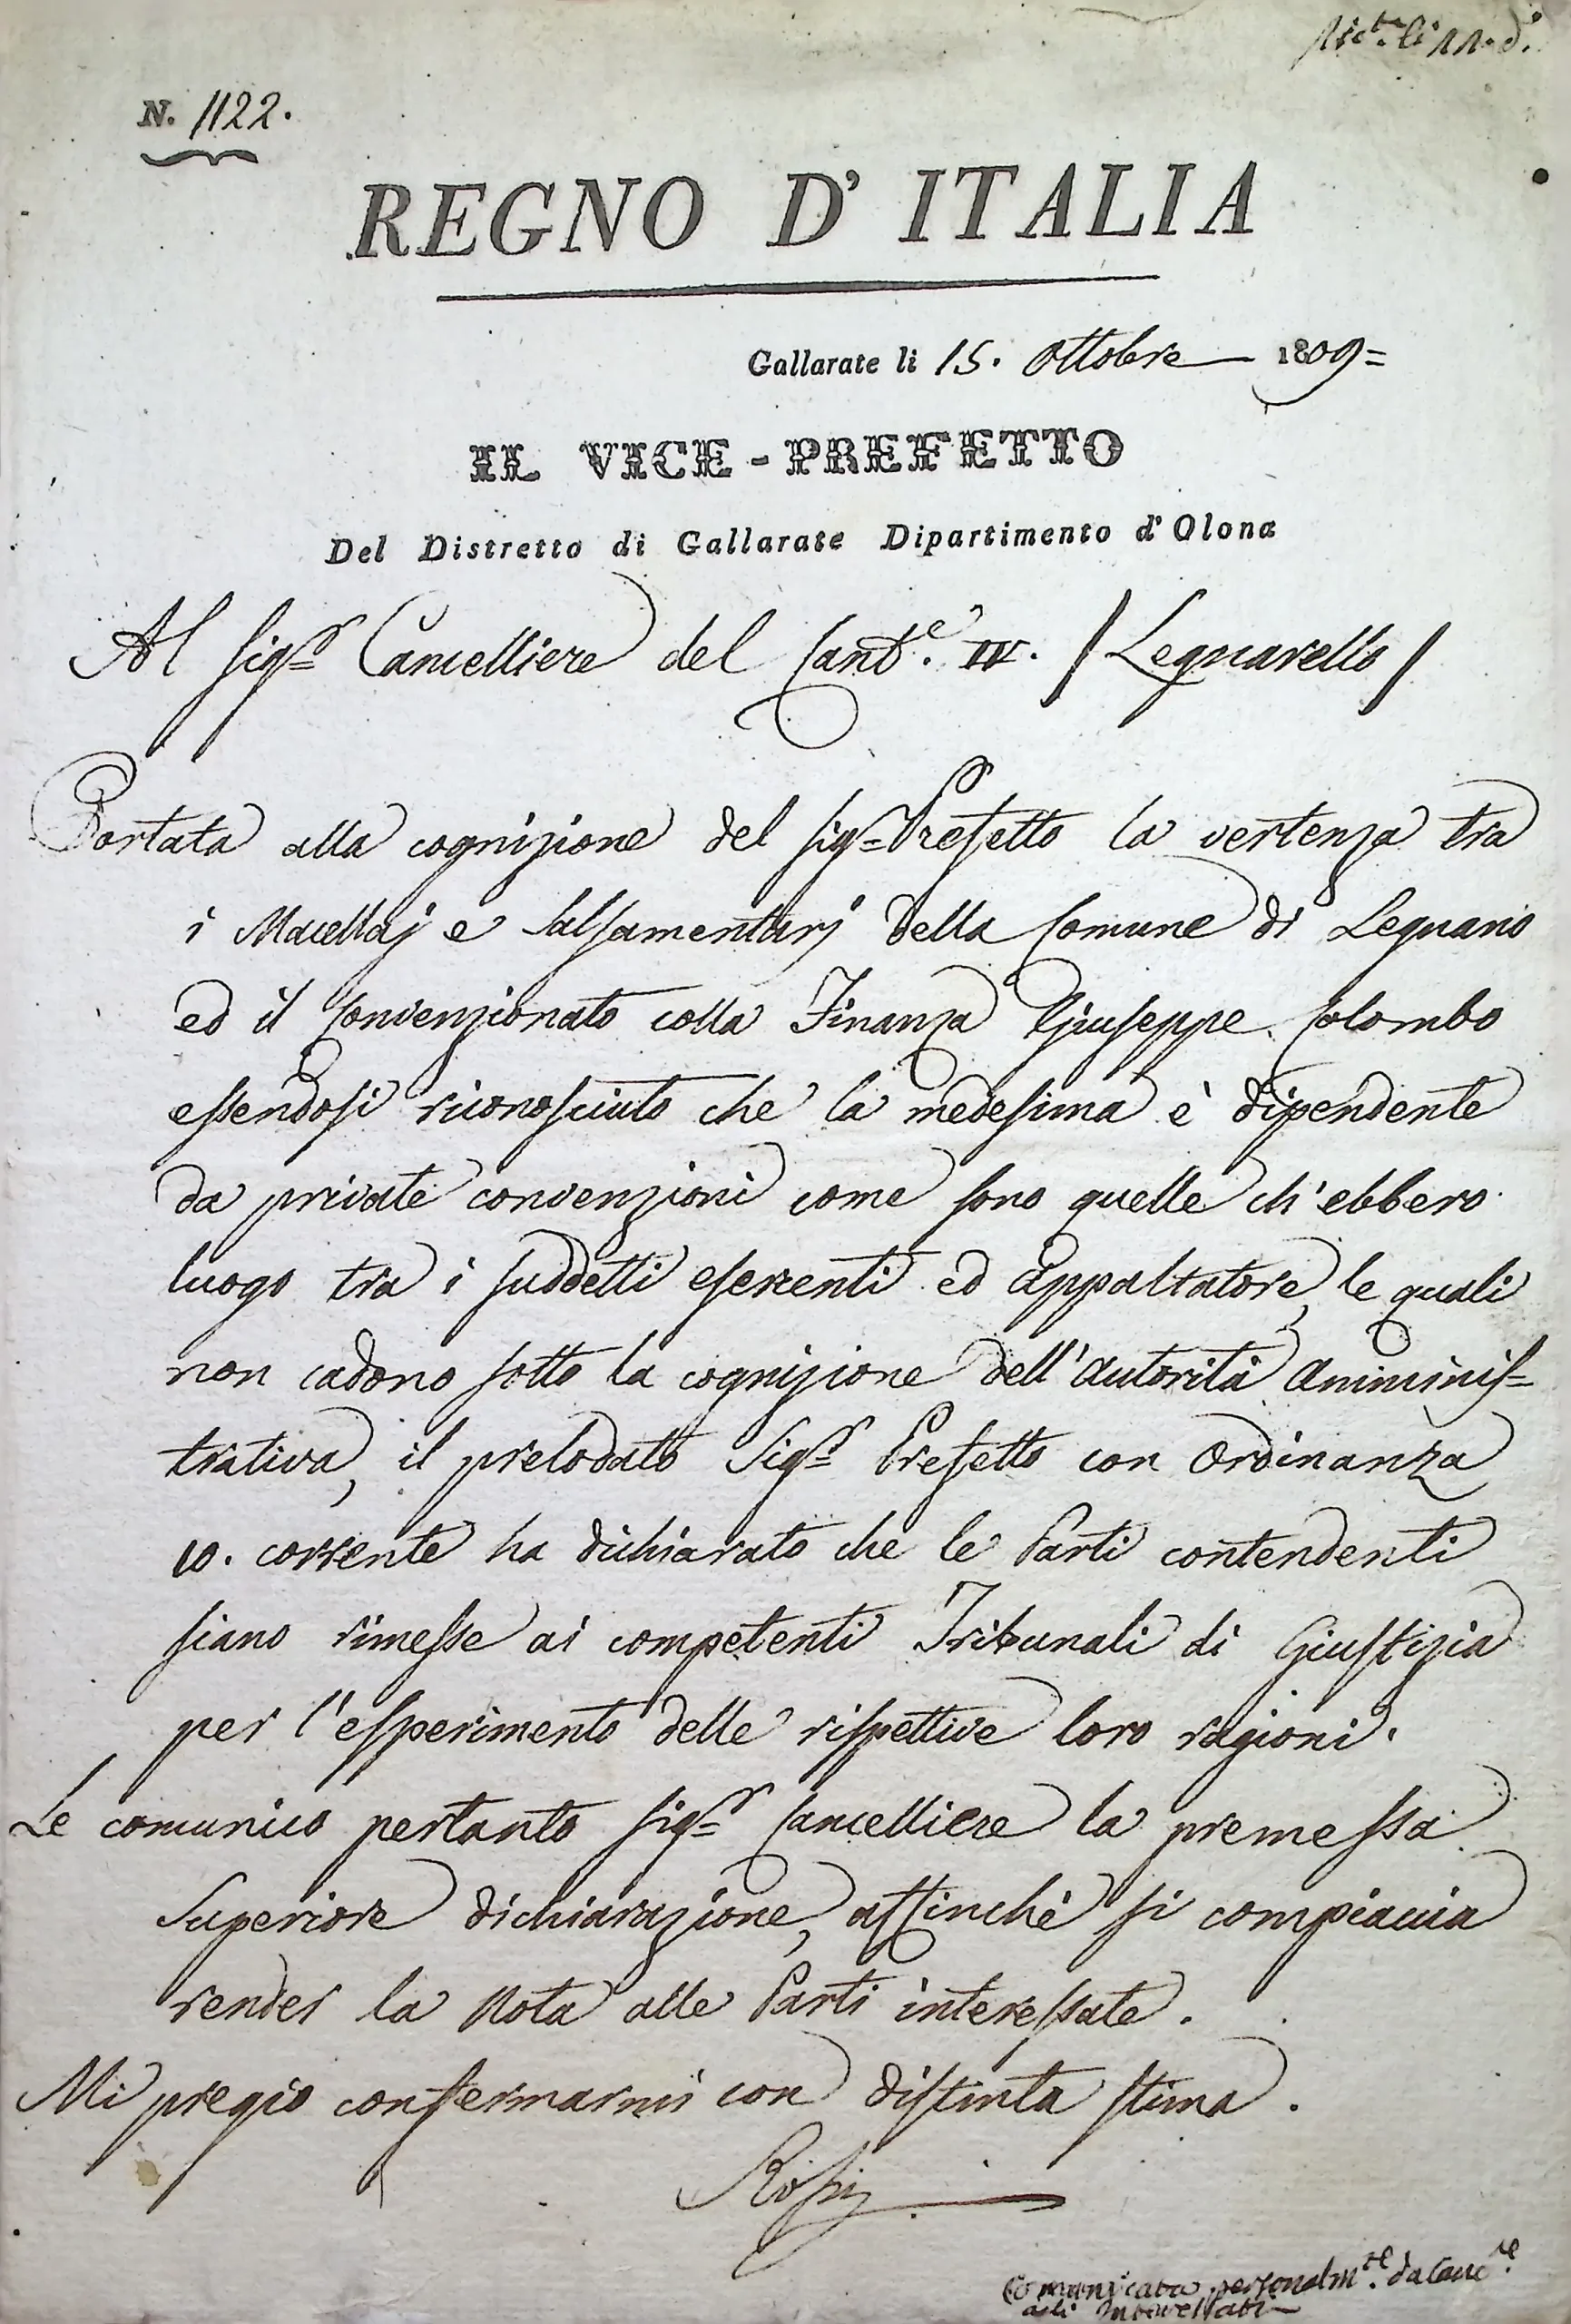 N. 1122.
REGNO D' ITALIA
Gallarate li 15. Ottobre 1809=
IL VICE-PREFETTO
Del Distretto di Gallarate Dipartimento d'Olona
Al Sig.r Cancelliere del Cant.e IV. / Legnarello /
Portata alla cognizione del Sig.r Prefetto la vertenza tra
i Macellaj e Salsamentarj della Comune di Legnano
ed il Convenzionato colla Finanza Giuseppe Colombo
essendosi riconosciuto che la medesima è dipendente
da private convenzioni come sono quelle ch'ebbero
luogo tra i suddetti esercenti ed appaltatore, le quali
non cadono sotto la cognizione dell'autorità Amminis=
trativa, il prelodato Sig.r Prefetto con Ordinanza
10. corrente ha dichiarato che le Parti contendenti
siano rimesse ai competenti Tribunali di Giustizia
per l'esperimento delle rispettive loro ragioni.
Le comunico pertanto Sig.r Cancelliere la premessa
Superiore dichiarazione, affinchè si compiaccia
render la Nota alle Parti interessate.
Mi pregio confermarmi con distinta stima.
Comunicata personalm.te da Canc.re
agli